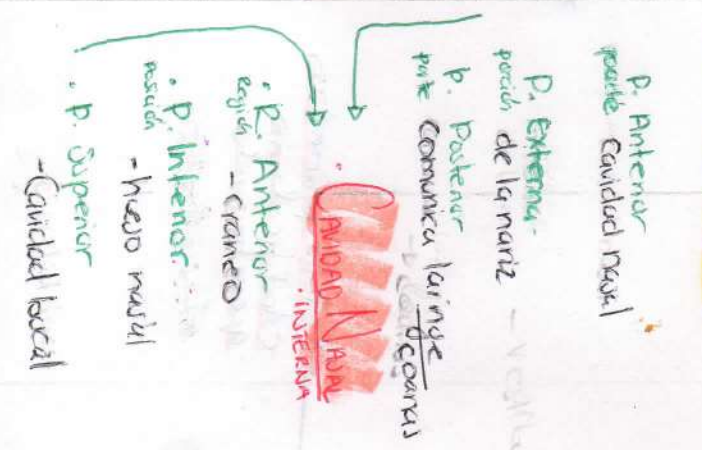 P. Anterior
parte cavidad nasal
P. Externa-
porción de la nariz
P. Posterior
parte comunica laringe
coanas
CAVIDAD NASAL
INTERNA
R. Anterior
Región - craneo
P. Inferior
posición - hueso nasal
P. Superior
- Cavidad bucal